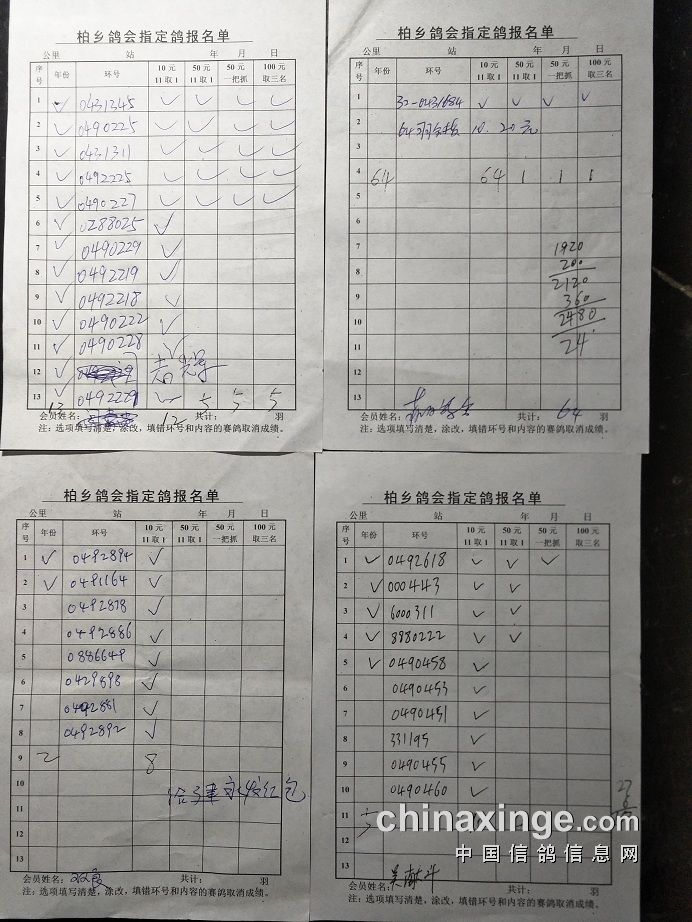 柏乡鸽会指定鸽报名单
公里 站 年 月 日
序号 年份 环号 10元 11取1 50元 11取1 50元 一把抓 100元 取三名
1 ✓ 0431345 ✓ ✓ ✓ ✓
2 ✓ 0490225 ✓ ✓ ✓ ✓
3 ✓ 0431311 ✓ ✓ ✓ ✓
4 ✓ 0492225 ✓ ✓ ✓ ✓
5 ✓ 0490227 ✓ ✓ ✓ ✓
6 ✓ 0288025 ✓
7 ✓ 0490229 ✓
8 ✓ 0492219 ✓
9 ✓ 0492218 ✓
10 ✓ 0490222 ✓
11 ✓ 0490228 ✓
12 ✓
13 0492229 ✓ 5 5 5
会员姓名: 12 共计: 羽
注:选项填写清楚,涂改,填错环号和内容的赛鸽取消成绩。
柏乡鸽会指定鸽报名单
公里 站 年 月 日
序号 年份 环号 10元 11取1 50元 11取1 50元 一把抓 100元 取三名
1 0431684 ✓ ✓ ✓ ✓
2 64羽 10.20元
3
4 64 64 1 1 1
5
6
7 1920
8 200
2120
9 360
10 2480
11 24
12
13
会员姓名: 共计: 64 羽
注:选项填写清楚,涂改,填错环号和内容的赛鸽取消成绩。
柏乡鸽会指定鸽报名单
公里 站 年 月 日
序号 年份 环号 10元 11取1 50元 11取1 50元 一把抓 100元 取三名
1 ✓ 0492894 ✓
2 ✓ 0491164 ✓
3 0492878 ✓
4 0492886 ✓
5 0886649 ✓
6 0429898 ✓
7 0492881 ✓
8 0492892 ✓
9 2 8
10 红包
11
12
13
会员姓名: 双良 共计: 羽
注:选项填写清楚,涂改,填错环号和内容的赛鸽取消成绩。
柏乡鸽会指定鸽报名单
公里 站 年 月 日
序号 年份 环号 10元 11取1 50元 11取1 50元 一把抓 100元 取三名
1 ✓ 0492618 ✓ ✓ ✓
2 ✓ 000443 ✓ ✓
3 ✓ 6000311 ✓ ✓
4 ✓ 8980222 ✓ ✓
5 ✓ 0490458 ✓
6 0490453 ✓
7 0490451 ✓
8 331195 ✓
9 0490455 ✓
10 0490460 ✓
11
12
13
会员姓名: 吴献斗 共计: 羽
注:选项填写清楚,涂改,填错环号和内容的赛鸽取消成绩。
chinaxinge.com
中国信鸽信息网